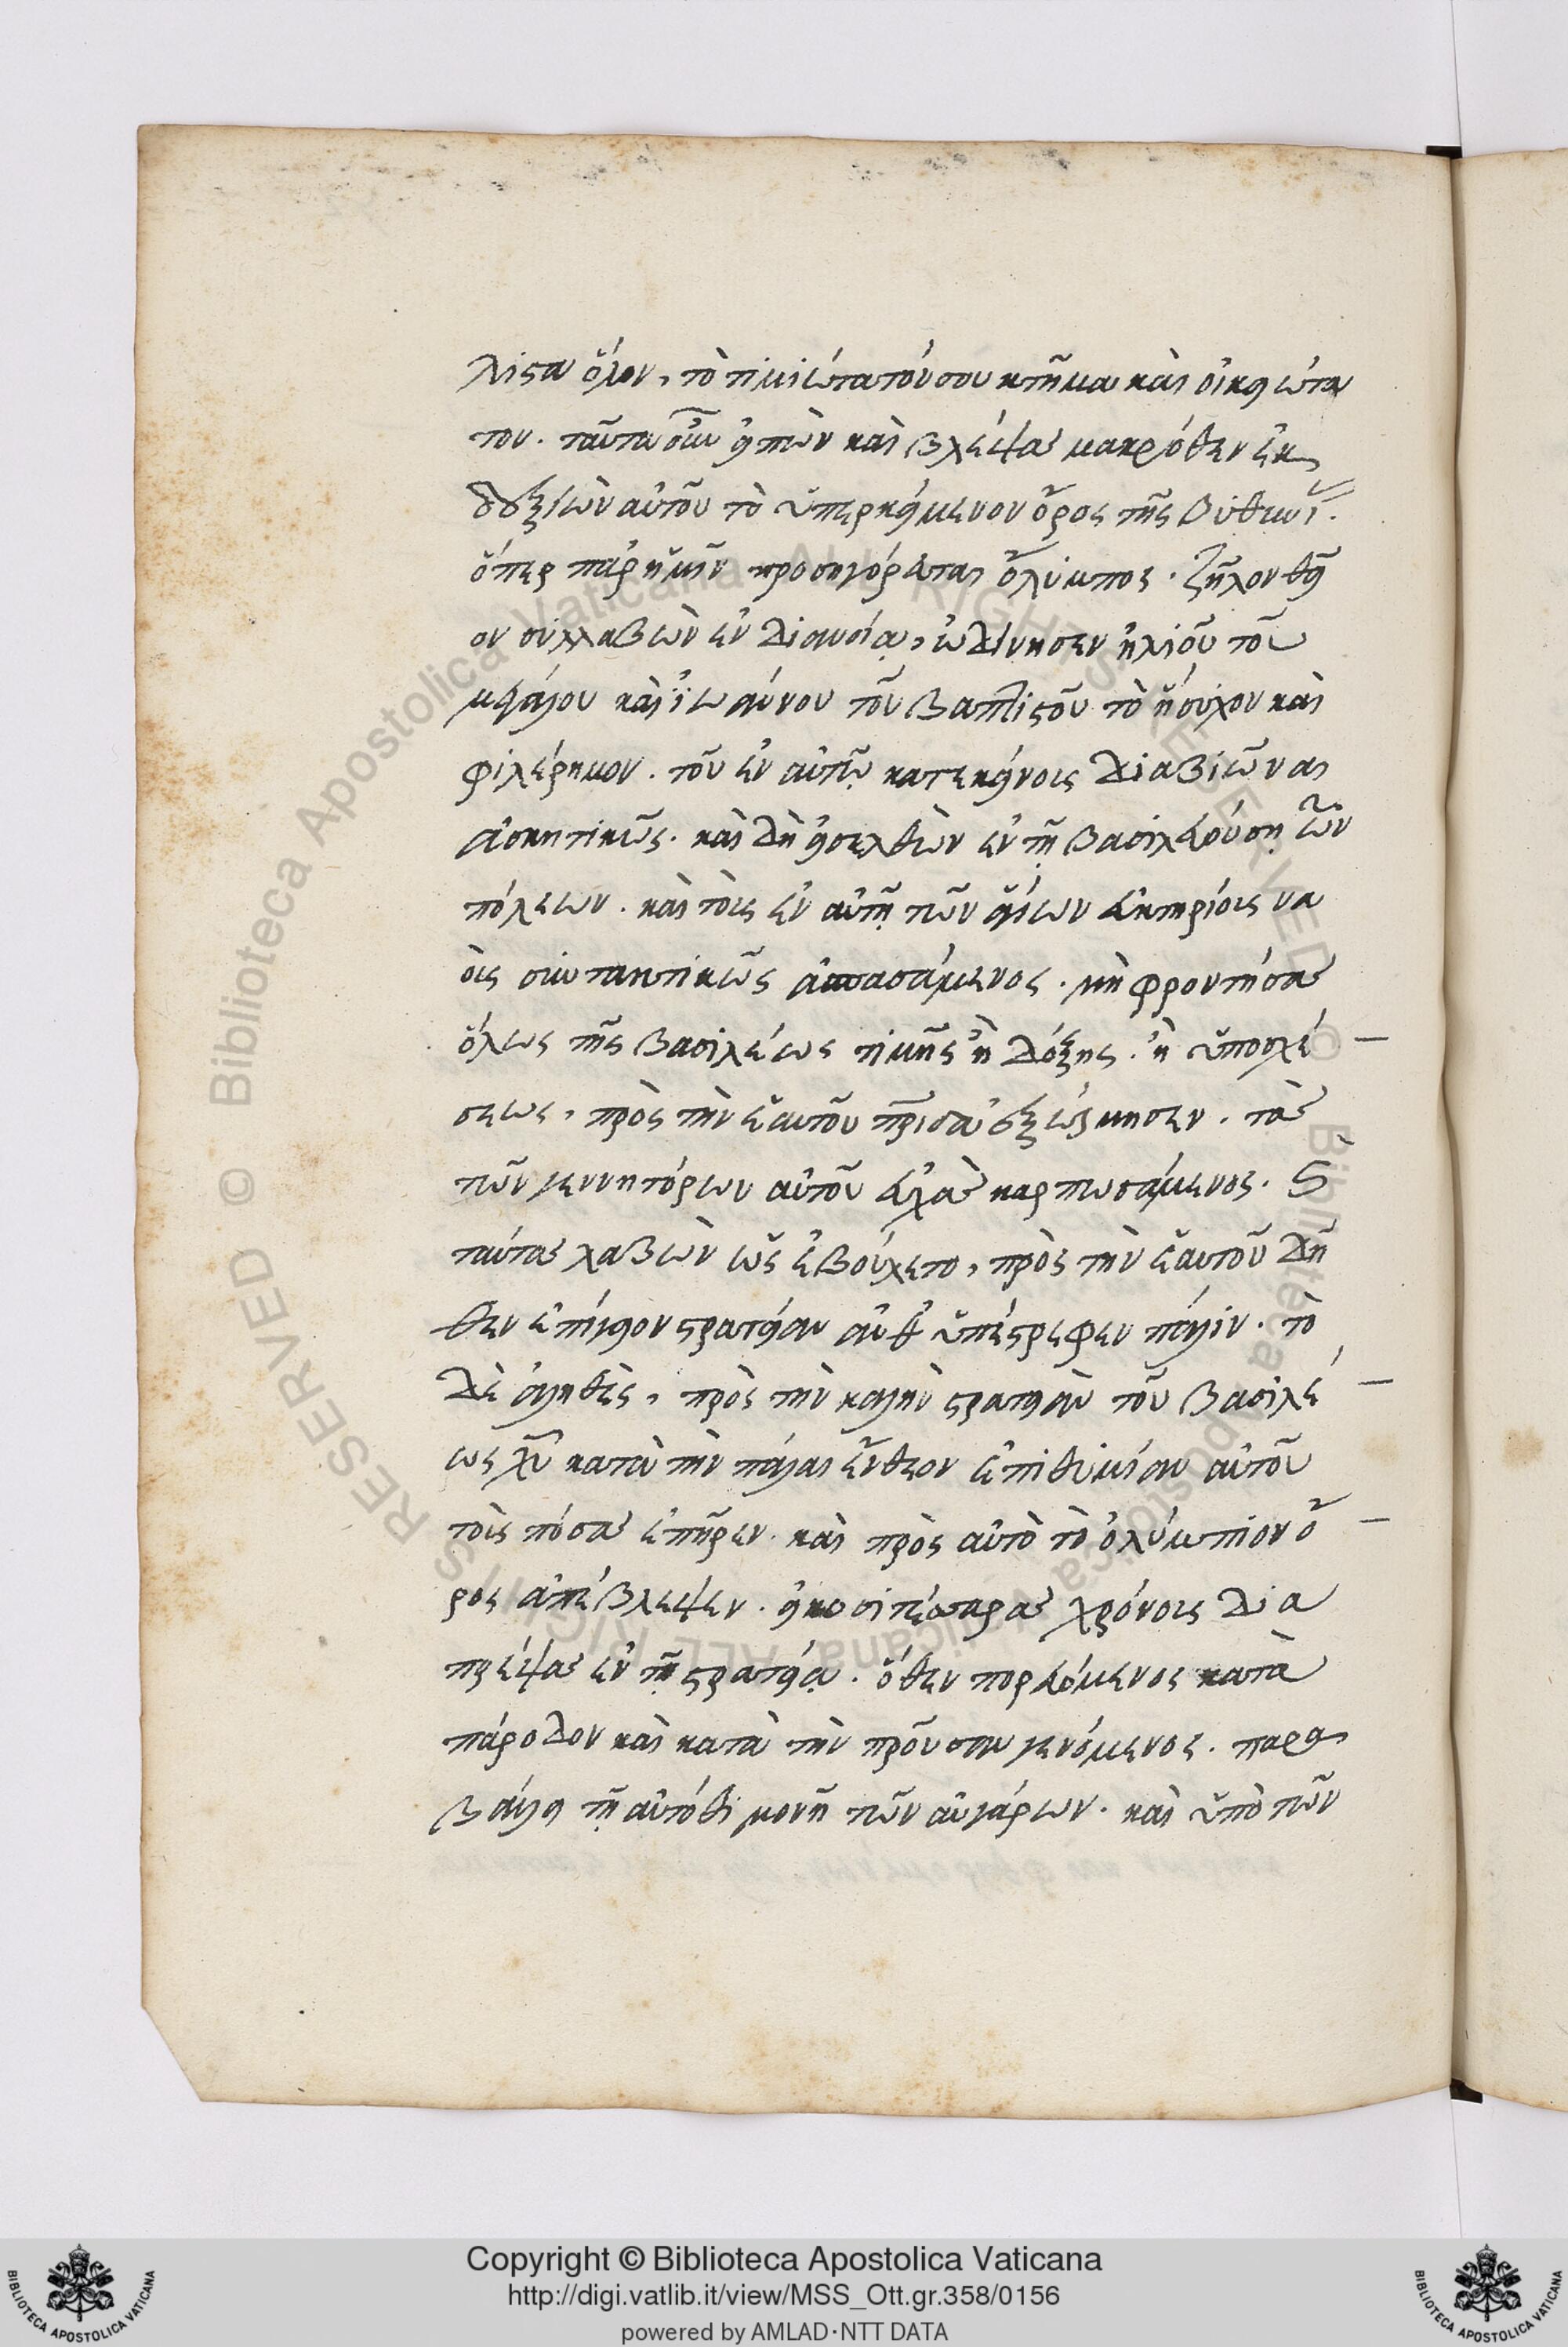 λιστα ὅλον, τὸ τιμιώτατόν σου κτῆμα καὶ οἰκειώτα
τον. ταῦτα οὖν εἰπὼν καὶ βλέψας μακρόθεν ἐκ
δεξιῶν αὐτοῦ τὸ ὑπερκείμενον ὄρος τῆς Βιθυνί.
ὅπερ παρ' ἡμῖν προσηγόρευται ὄλυμπος. ζῆλον θεῖ
ον συλλαβὼν ἐν διανοίᾳ, ὠδίνησεν ἡλιοῦ τοῦ
μεγάλου καὶ ἰωάννου τοῦ βαπτιστοῦ τὸ ἥσυχον καὶ
φιλέρημον. τοῦ ἐν αὐτῷ κατεκείνοις διαβιῶναι
ἀσκητικῶς. καὶ δὴ εἰσελθὼν ἐν τῇ βασιλευούσῃ τῶν
πόλεων. καὶ τοῖς ἐν αὐτῇ τῶν ἁγίων εὐκτηρίοις να
οῖς συντακτικῶς ἀσπασάμενος. μὴ φροντήσας
ὅλως τῆς βασιλέως τιμῆς ἢ δόξης. ἢ ὑποσχέ
σεως, πρὸς τὴν ἑαυτοῦ πρίδα ἐξώρμησεν. τὰς
τῶν γεννητόρων αὐτοῦ εὐχὰς καρπωσάμενος. καὶ
ταύτας λαβὼν ὡς ἐβούλετο, πρὸς τὴν ἑαυτοῦ δῆ
θεν ἐπίγειον στρατείαν αὖθ' ὑπέστρεφεν πάλιν. τὸ
δὲ ἀληθὲς, πρὸς τὴν καλὴν στρατείαν τοῦ βασιλέ
ως χυ κατὰ τὴν πάλαι ἔνθεον ἐπιθυμίαν αὐτοῦ
τοῖς πόδας ἐπῆρεν. καὶ πρὸς αὐτὸ τὸ ὀλύμπιον ὄ
ρος ἀπέβλεψεν. εἰκοσιτέσσαρας χρόνοις δια
πρέψας ἐν τῇ στρατείᾳ. ὅθεν πορευόμενος κατὰ
πάροδον καὶ κατὰ τὴν προῦσαν γενόμενος. παρα
βάλει τῇ αὐτόθι μονῇ τῶν αὐγάρων. καὶ ὑπὸ τῶν
Copyright © Biblioteca Apostolica Vaticana
http://digi.vatlib.it/view/MSS_Ott.gr.358/0156
powered by AMLAD·NTT DATA